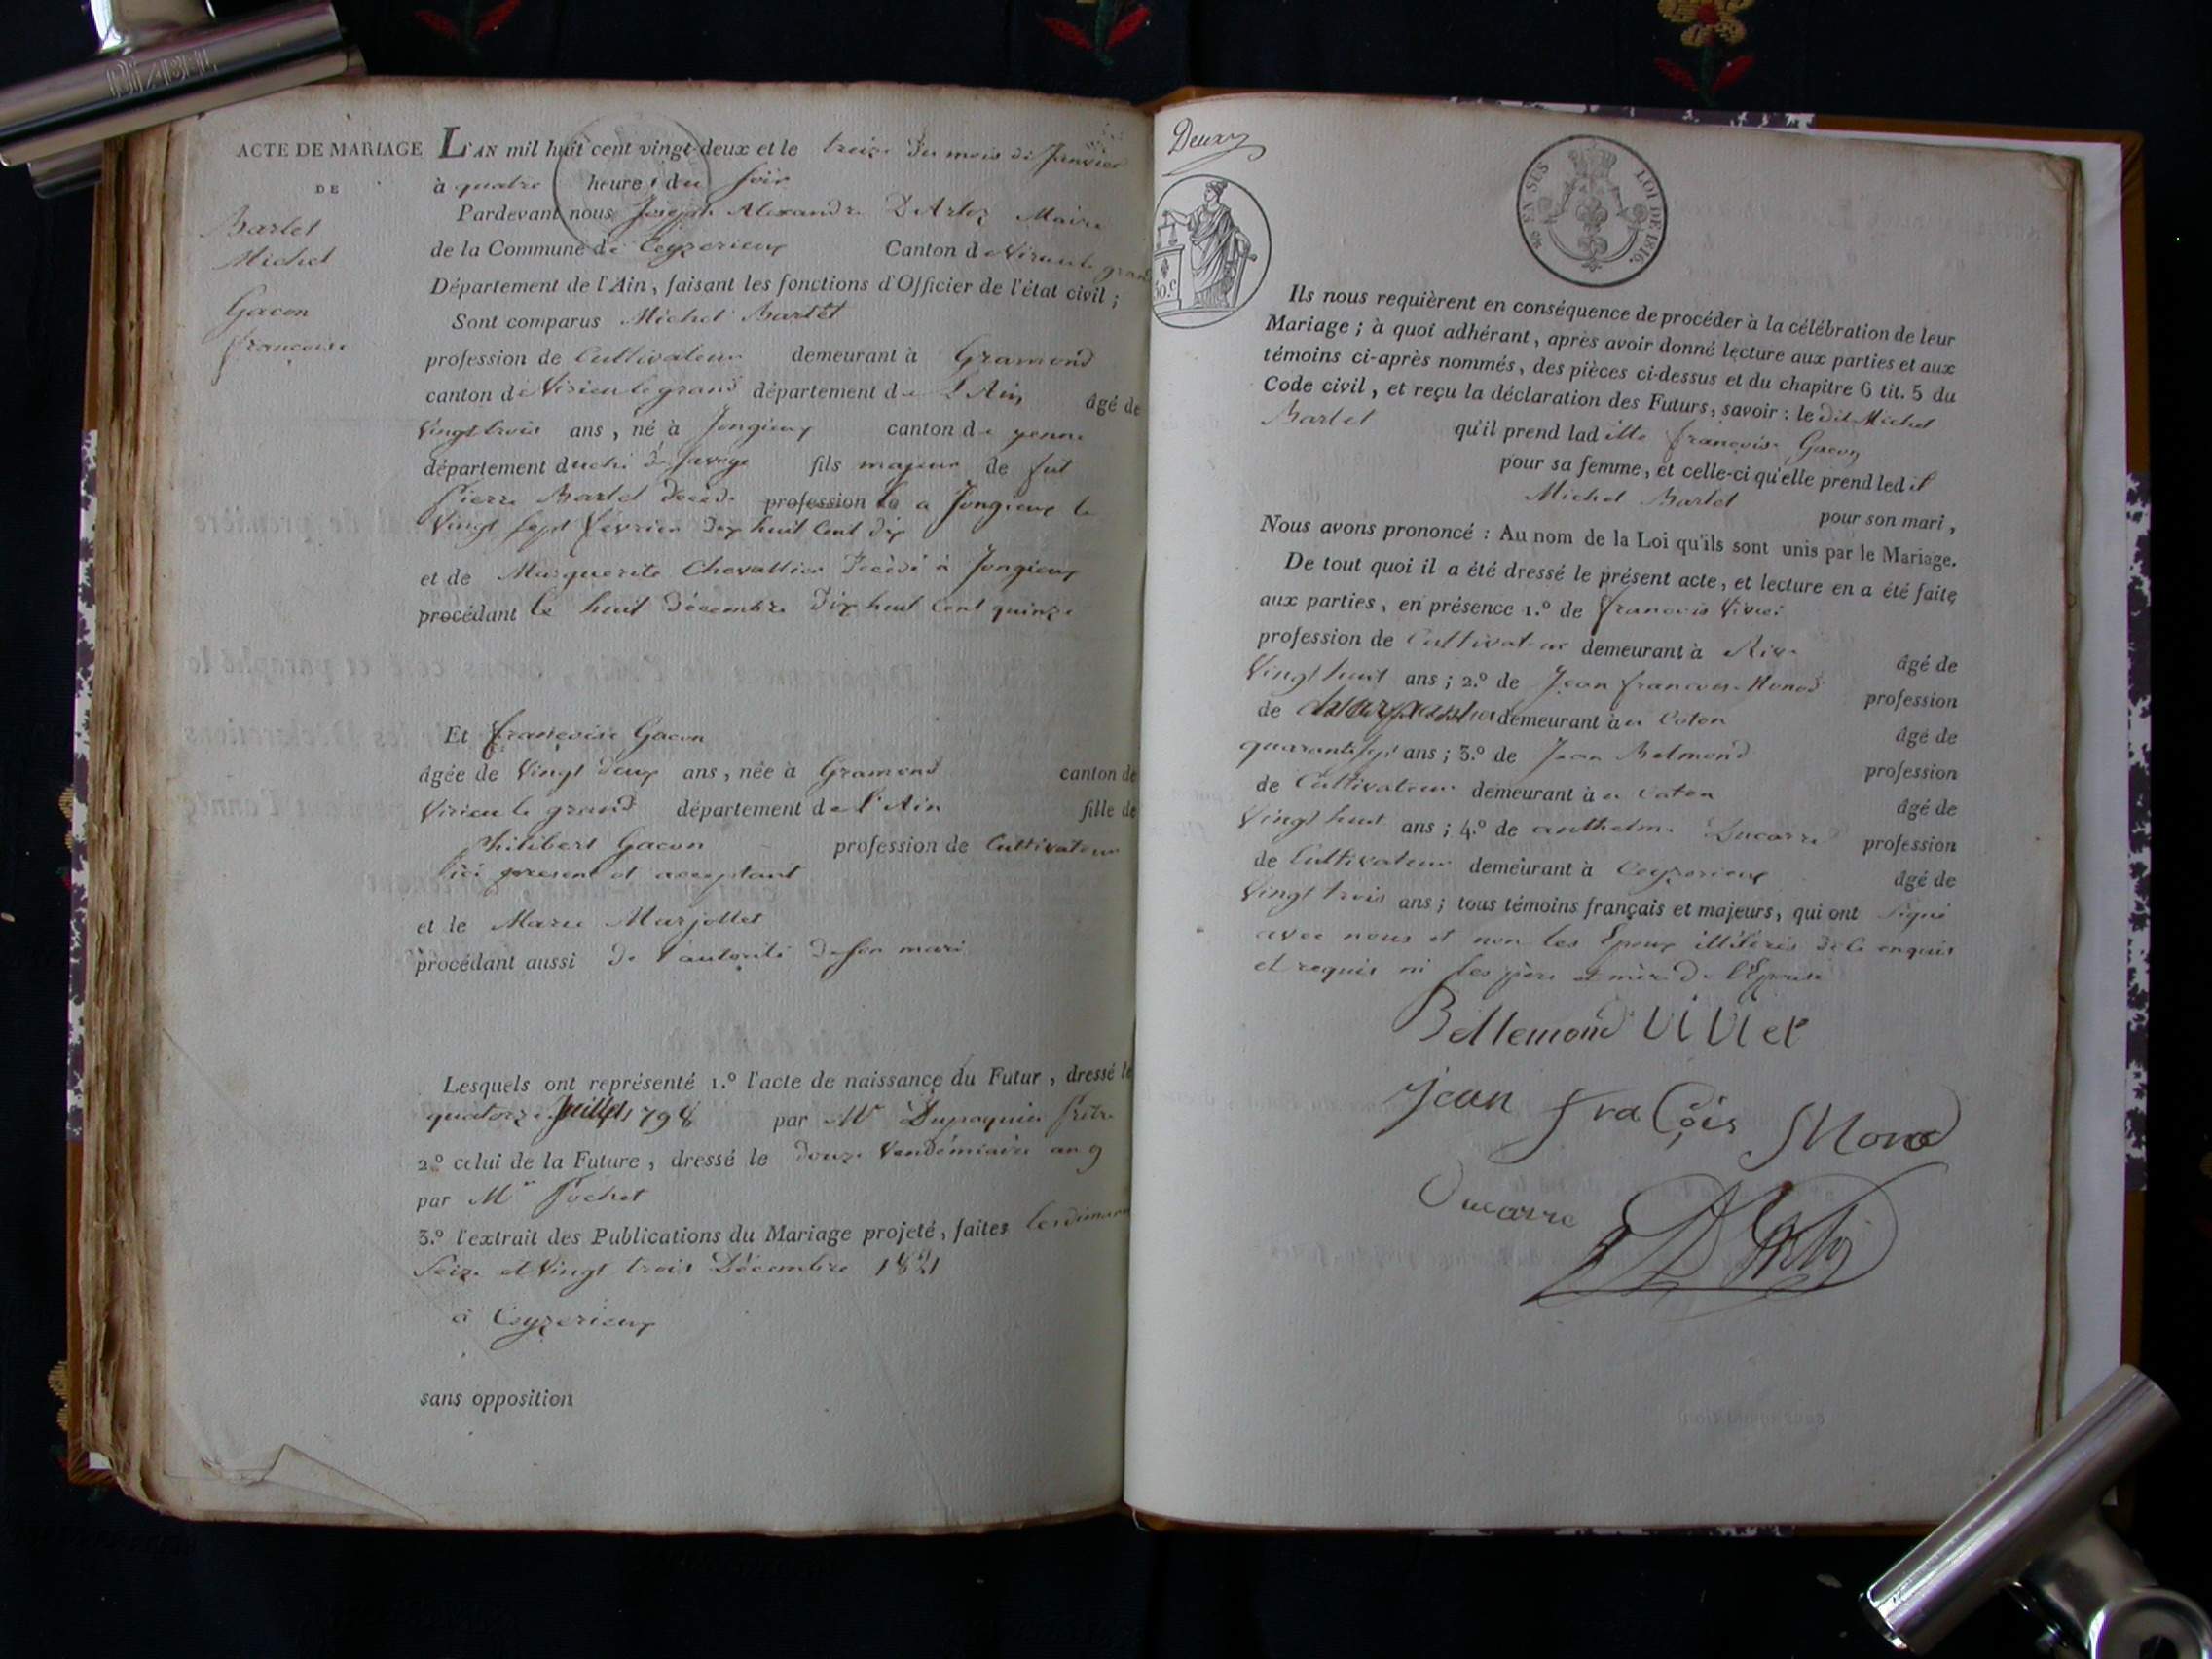 DIABEL
ACTE DE MARIAGE
DE
Bartet
Michel
Gacon
francoise
L'AN mil huit cent vingt-deux et le treize du mois de Janvier
à quatre heures du soir
Pardevant nous Joseph Alexandre D'Arloz Maire
de la Commune de Ceyzerieux Canton de Virieu le grand
Département de l'Ain, faisant les fonctions d'Officier de l'état civil ;
Sont comparus Michel Bartet
profession de Cultivateur demeurant à Gramond
canton de Virieu le grand département de L'Ain âgé de
Vingt trois ans, né à Jongieux canton de yenne
département duché de Savoye fils majeur de fut
Pierre Bartet décédé profession a Jongieux le
Vingt sept février dix huit cent dix
et de Marguerite Chevallier décédé à Jongieux
procédant le huit décembre dix huit cent quinze
Et françoise Gacon
âgée de Vingt deux ans, née à Gramond canton de
Virieu le grand département de l'Ain fille de
Philibert Gacon profession de Cultivateur
ici present et acceptant
et de Marie Marjollet
procédant aussi de l'autorité de son mari
Lesquels ont représenté 1.º l'acte de naissance du Futur, dressé le
quatorze Juillet 1798 par Mr Dupaquier prêtre
2.º celui de la Future, dressé le douze Vendémiaire an 9
par Mr Pochet
3.º l'extrait des Publications du Mariage projeté, faites les diman
Seize et Vingt trois Décembre 1821
à Ceyzerieux
sans opposition
Deux
30.c
EN SUS
LOI DE 1816.
Ils nous requièrent en conséquence de procéder à la célébration de leur
Mariage ; à quoi adhérant, après avoir donné lecture aux parties et aux
témoins ci-après nommés, des pièces ci-dessus et du chapitre 6 tit. 5 du
Code civil, et reçu la déclaration des Futurs, savoir : le dit Michel
Bartet qu'il prend ladite françoise Gacon
pour sa femme, et celle-ci qu'elle prend ledit
Michel Bartet pour son mari,
Nous avons prononcé : Au nom de la Loi qu'ils sont unis par le Mariage.
De tout quoi il a été dressé le présent acte, et lecture en a été faite
aux parties, en présence 1.º de francois Viviet
profession de Cultivateur demeurant à âgé de
Vingt huit ans ; 2.º de Jean francois Monod profession
de demeurant à âgé de
quarante sept ans ; 3.º de Jean Belmond profession
de Cultivateur demeurant à âgé de
Vingt huit ans ; 4.º de anthelme Ducarre profession
de Cultivateur demeurant à Ceyzerieux âgé de
Vingt trois ans ; tous témoins français et majeurs, qui ont signé
avec nous et non les Epoux illitérés de ce enquis
et requis ni les père et mère de l'Epouse
Bellemond ViViet
Jean fraçois Monod
Ducarre